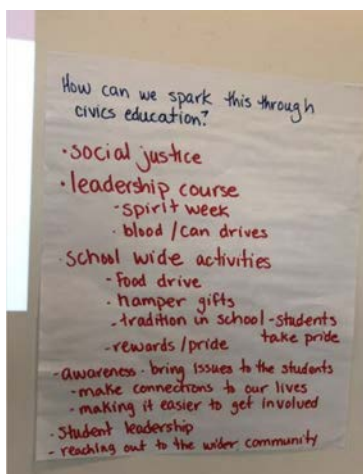 How can we spark this through
civics education?
·social justice
·leadership course
-spirit week
·blood/can drives
·school wide activities
-food drive
·hamper gifts
-tradition in school-students
take pride
-rewards/pride
-awareness·bring issues to the students
-make connections to our lives
-making it easier to get involved
·Student leadership
-reaching out to the wider community